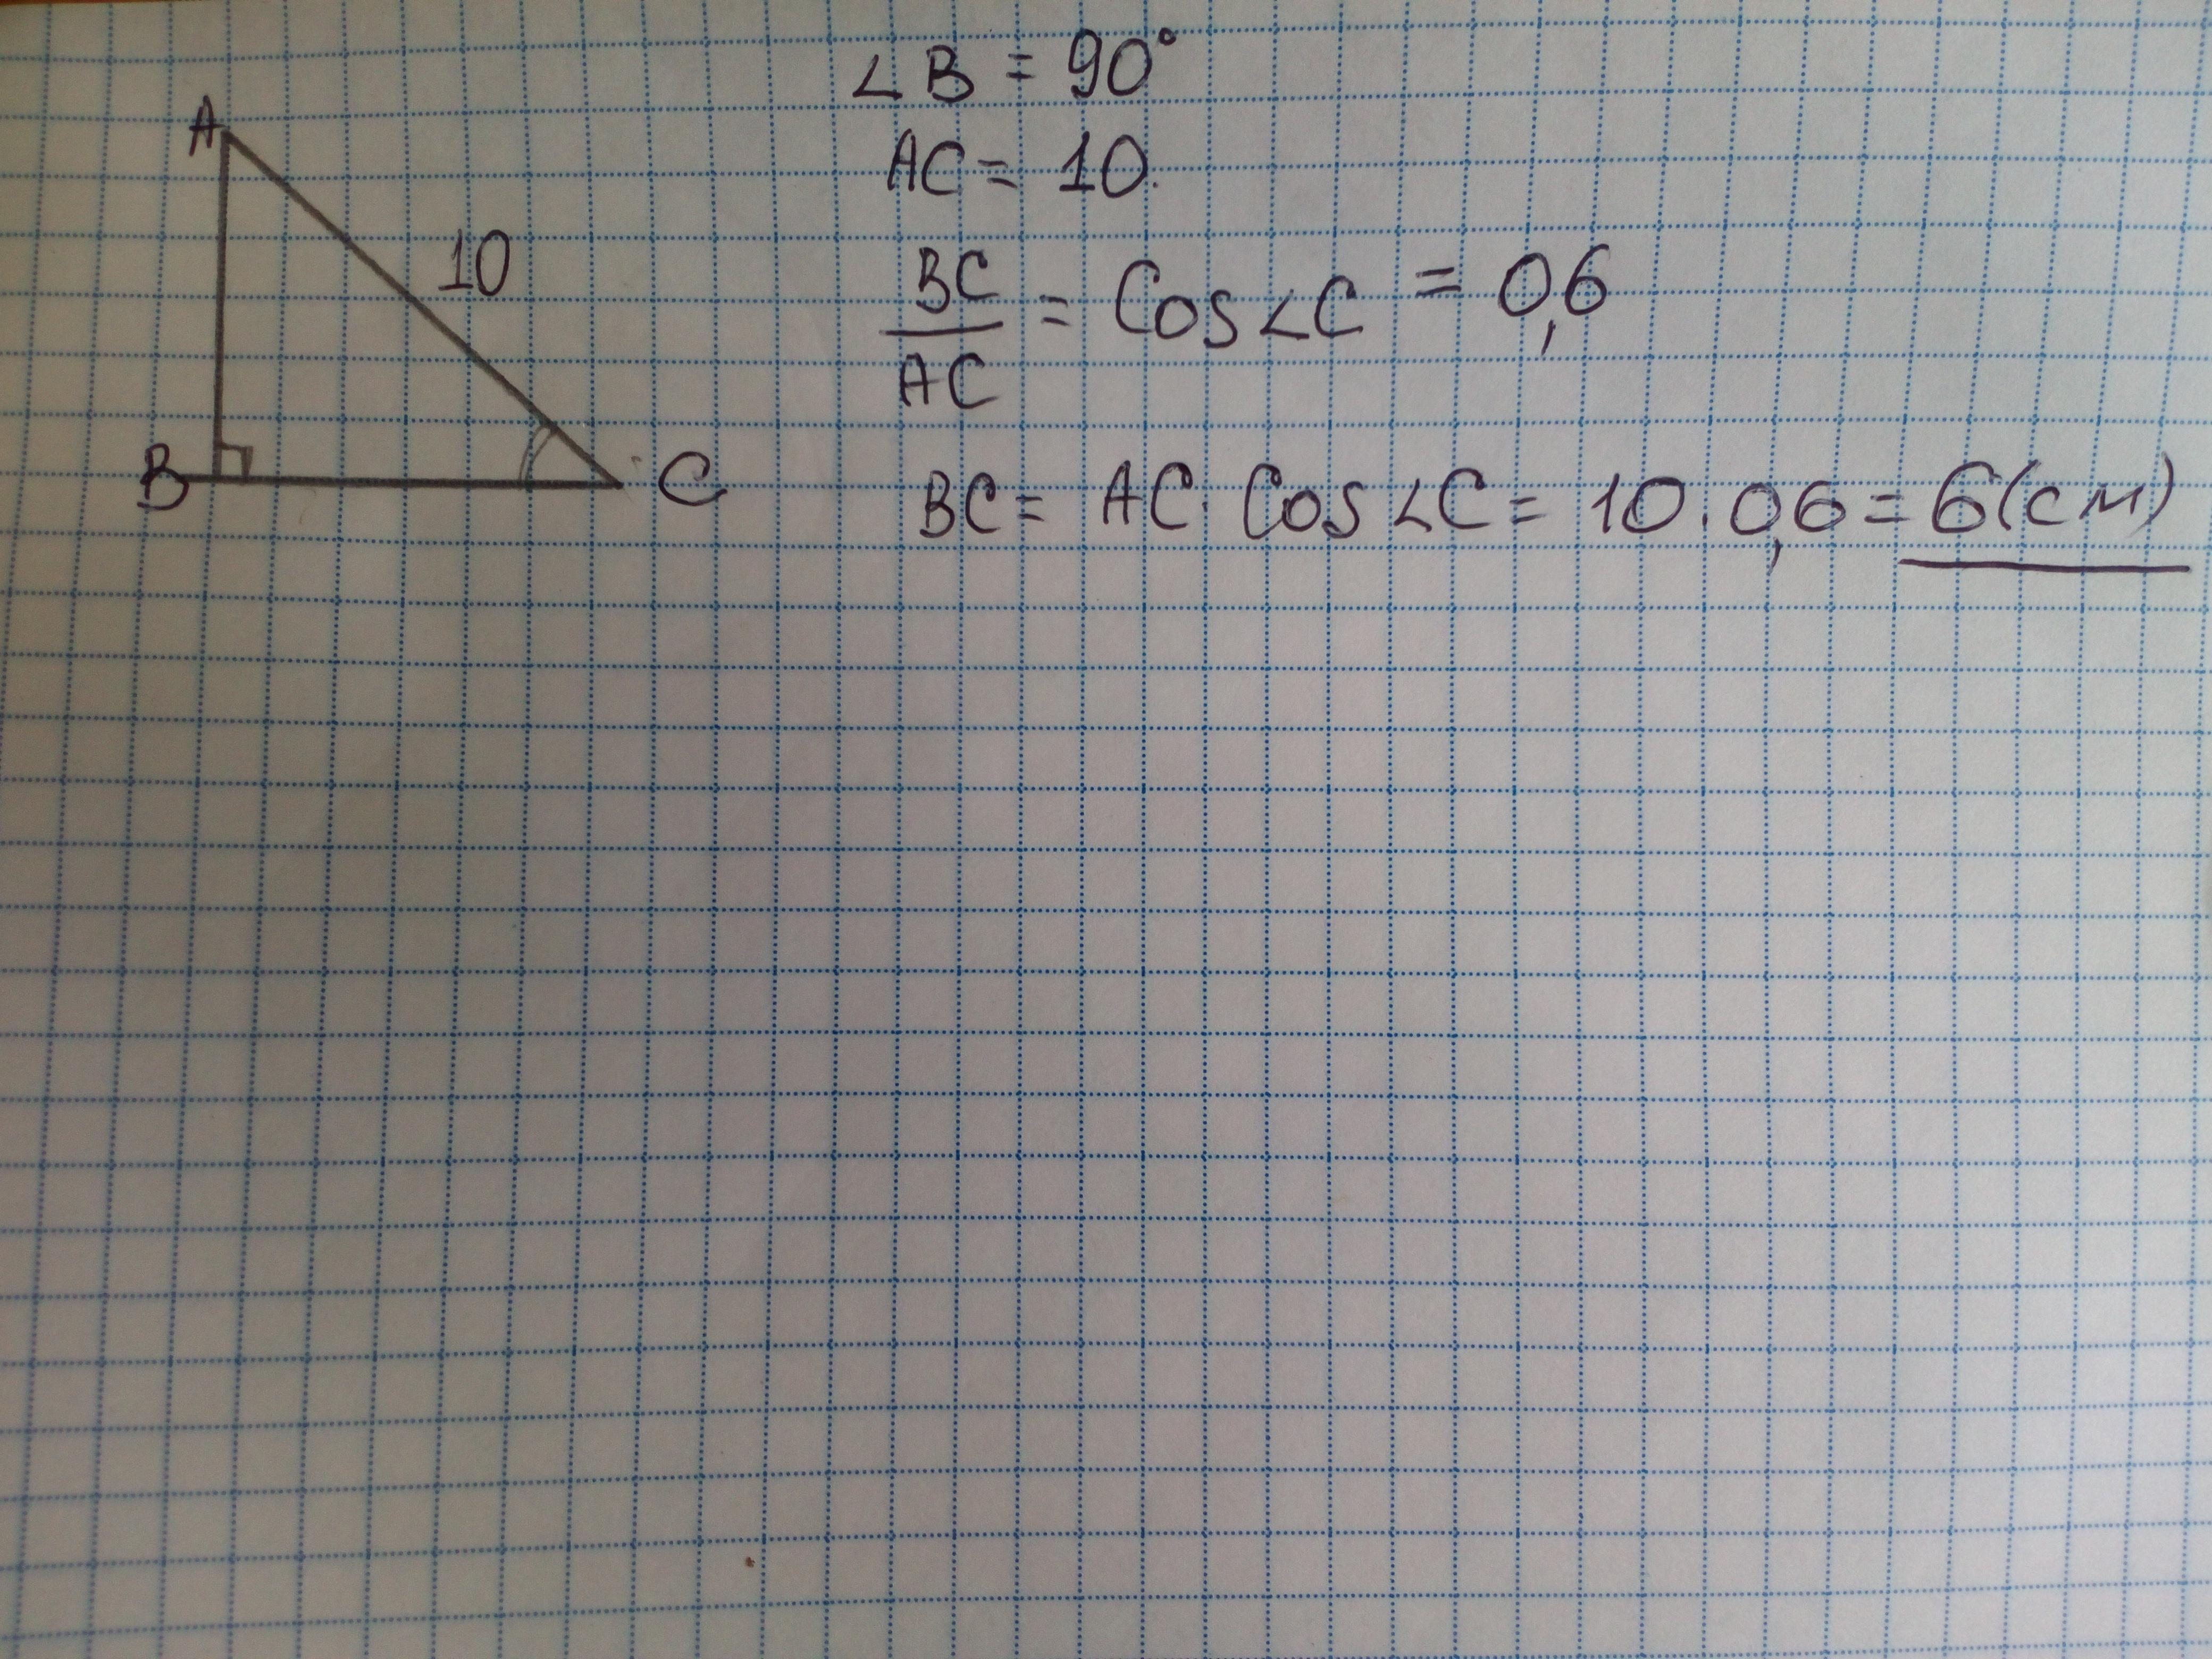 A
10
B
C
∠B = 90°
AC = 10.
BC
AC
= Cos∠C = 0,6
BC = AC · Cos∠C = 10 · 0,6 = 6(см)